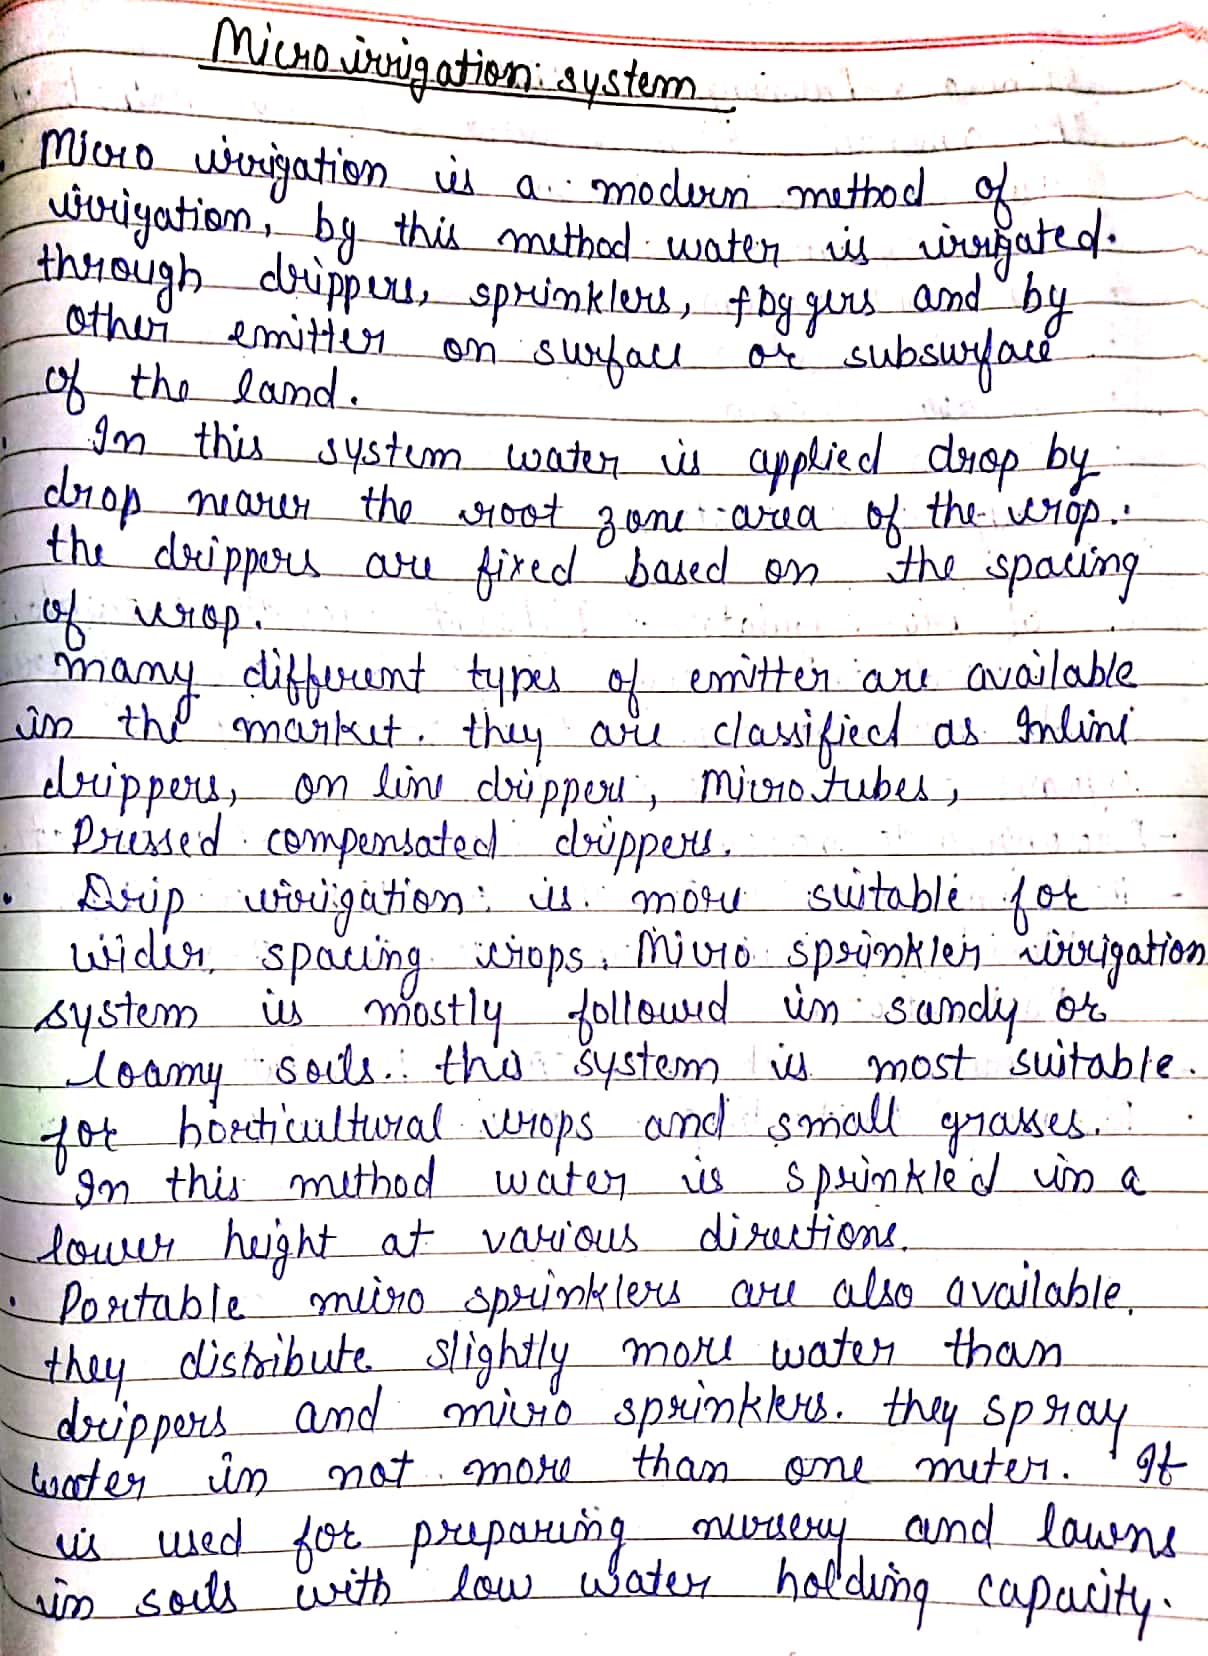 Micro irrigation system
• Micro irrigation is a modern method of
irrigation, by this method water is irrigated.
through drippers, sprinklers, foggers and by
other emitter on surface or subsurface
of the land.
• In this system water is applied drop by
drop nearer the root zone area of the crop.
the drippers are fixed based on the spacing
of crop.
many different types of emitter are available
in the market. they are classified as Inline
drippers, on line drippers, Micro tubes,
Pressed compensated drippers.
• Drip irrigation is more suitable for
wider spacing crops. Micro sprinkler irrigation
system is mostly followed in sandy or
loamy soils. this system is most suitable.
for horticultural crops and small grasses.
In this method water is sprinkled in a
lower height at various directions.
• Portable micro sprinklers are also available.
they distribute slightly more water than
drippers and micro sprinklers. they spray
water in not more than one meter. It
is used for preparing nursery and lawns
in soils with low water holding capacity.